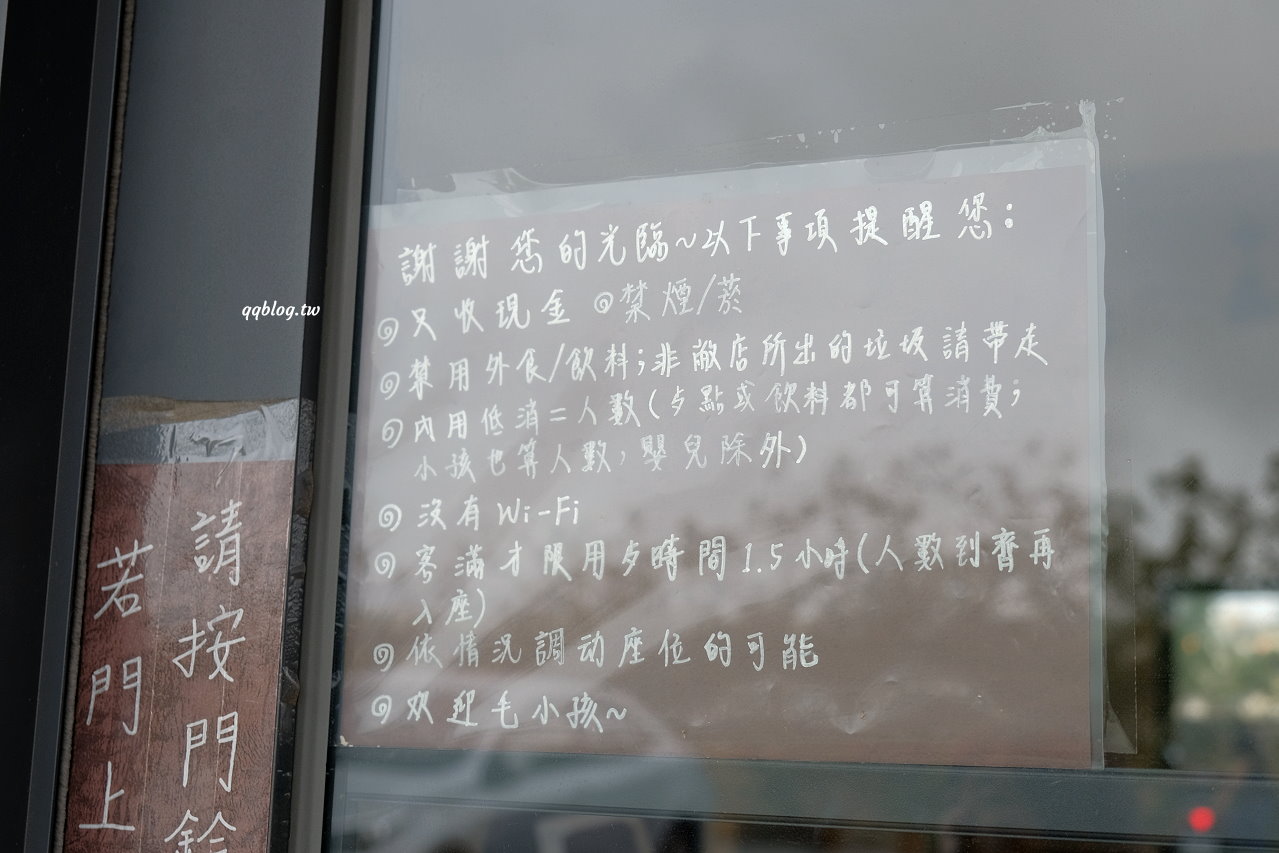 謝謝您的光臨~以下事項提醒您:
只收現金 禁煙/菸
禁用外食/飲料;非敝店所出的垃圾請帶走
內用低消=人數(歺點或飲料都可算消費;
小孩也算人數,嬰兒除外)
沒有Wi-Fi
客滿才限用歺時間1.5小時(人數到齊再
入座)
依情況調动座位的可能
欢迎毛小孩~
qqblog.tw
請按門鈴
若門上